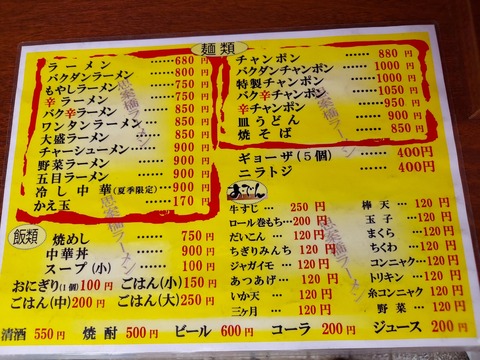 麺類
ラーメン ……… 680円
バクダンラーメン …… 800円
もやしラーメン …… 750円
辛ラーメン …… 750円
バク辛ラーメン …… 850円
ワンタンラーメン …… 850円
大盛ラーメン …… 850円
チャーシューメン …… 900円
野菜ラーメン …… 900円
五目ラーメン …… 900円
冷し中華(夏季限定) …… 900円
かえ玉 …… 170円
チャンポン …… 880円
バクダンチャンポン …… 1000円
特製チャンポン …… 1000円
バク辛チャンポン …… 1050円
辛チャンポン …… 950円
皿うどん …… 900円
焼そば …… 850円
ギョーザ(5個) …… 400円
ニラトジ …… 400円
飯類
焼めし …… 750円
中華丼 …… 900円
スープ(小) …… 100円
おにぎり(1個)100円 ごはん(小)150円
ごはん(中)200円 ごはん(大)250円
おでん
牛すじ … 250円
ロール巻もち… 200円
だいこん … 120円
ちぎりみんち 120円
ジャガイモ … 120円
あつあげ … 120円
いか天 … 120円
三ヶ月 … 120円
棒天 … 120円
玉子 … 120円
まくら … 120円
ちくわ … 120円
コンニャク… 120円
トリキン … 120円
糸コンニャク 120円
野菜 … 120円
清酒 550円 焼酎 500円 ビール 600円 コーラ 200円 ジュース 200円